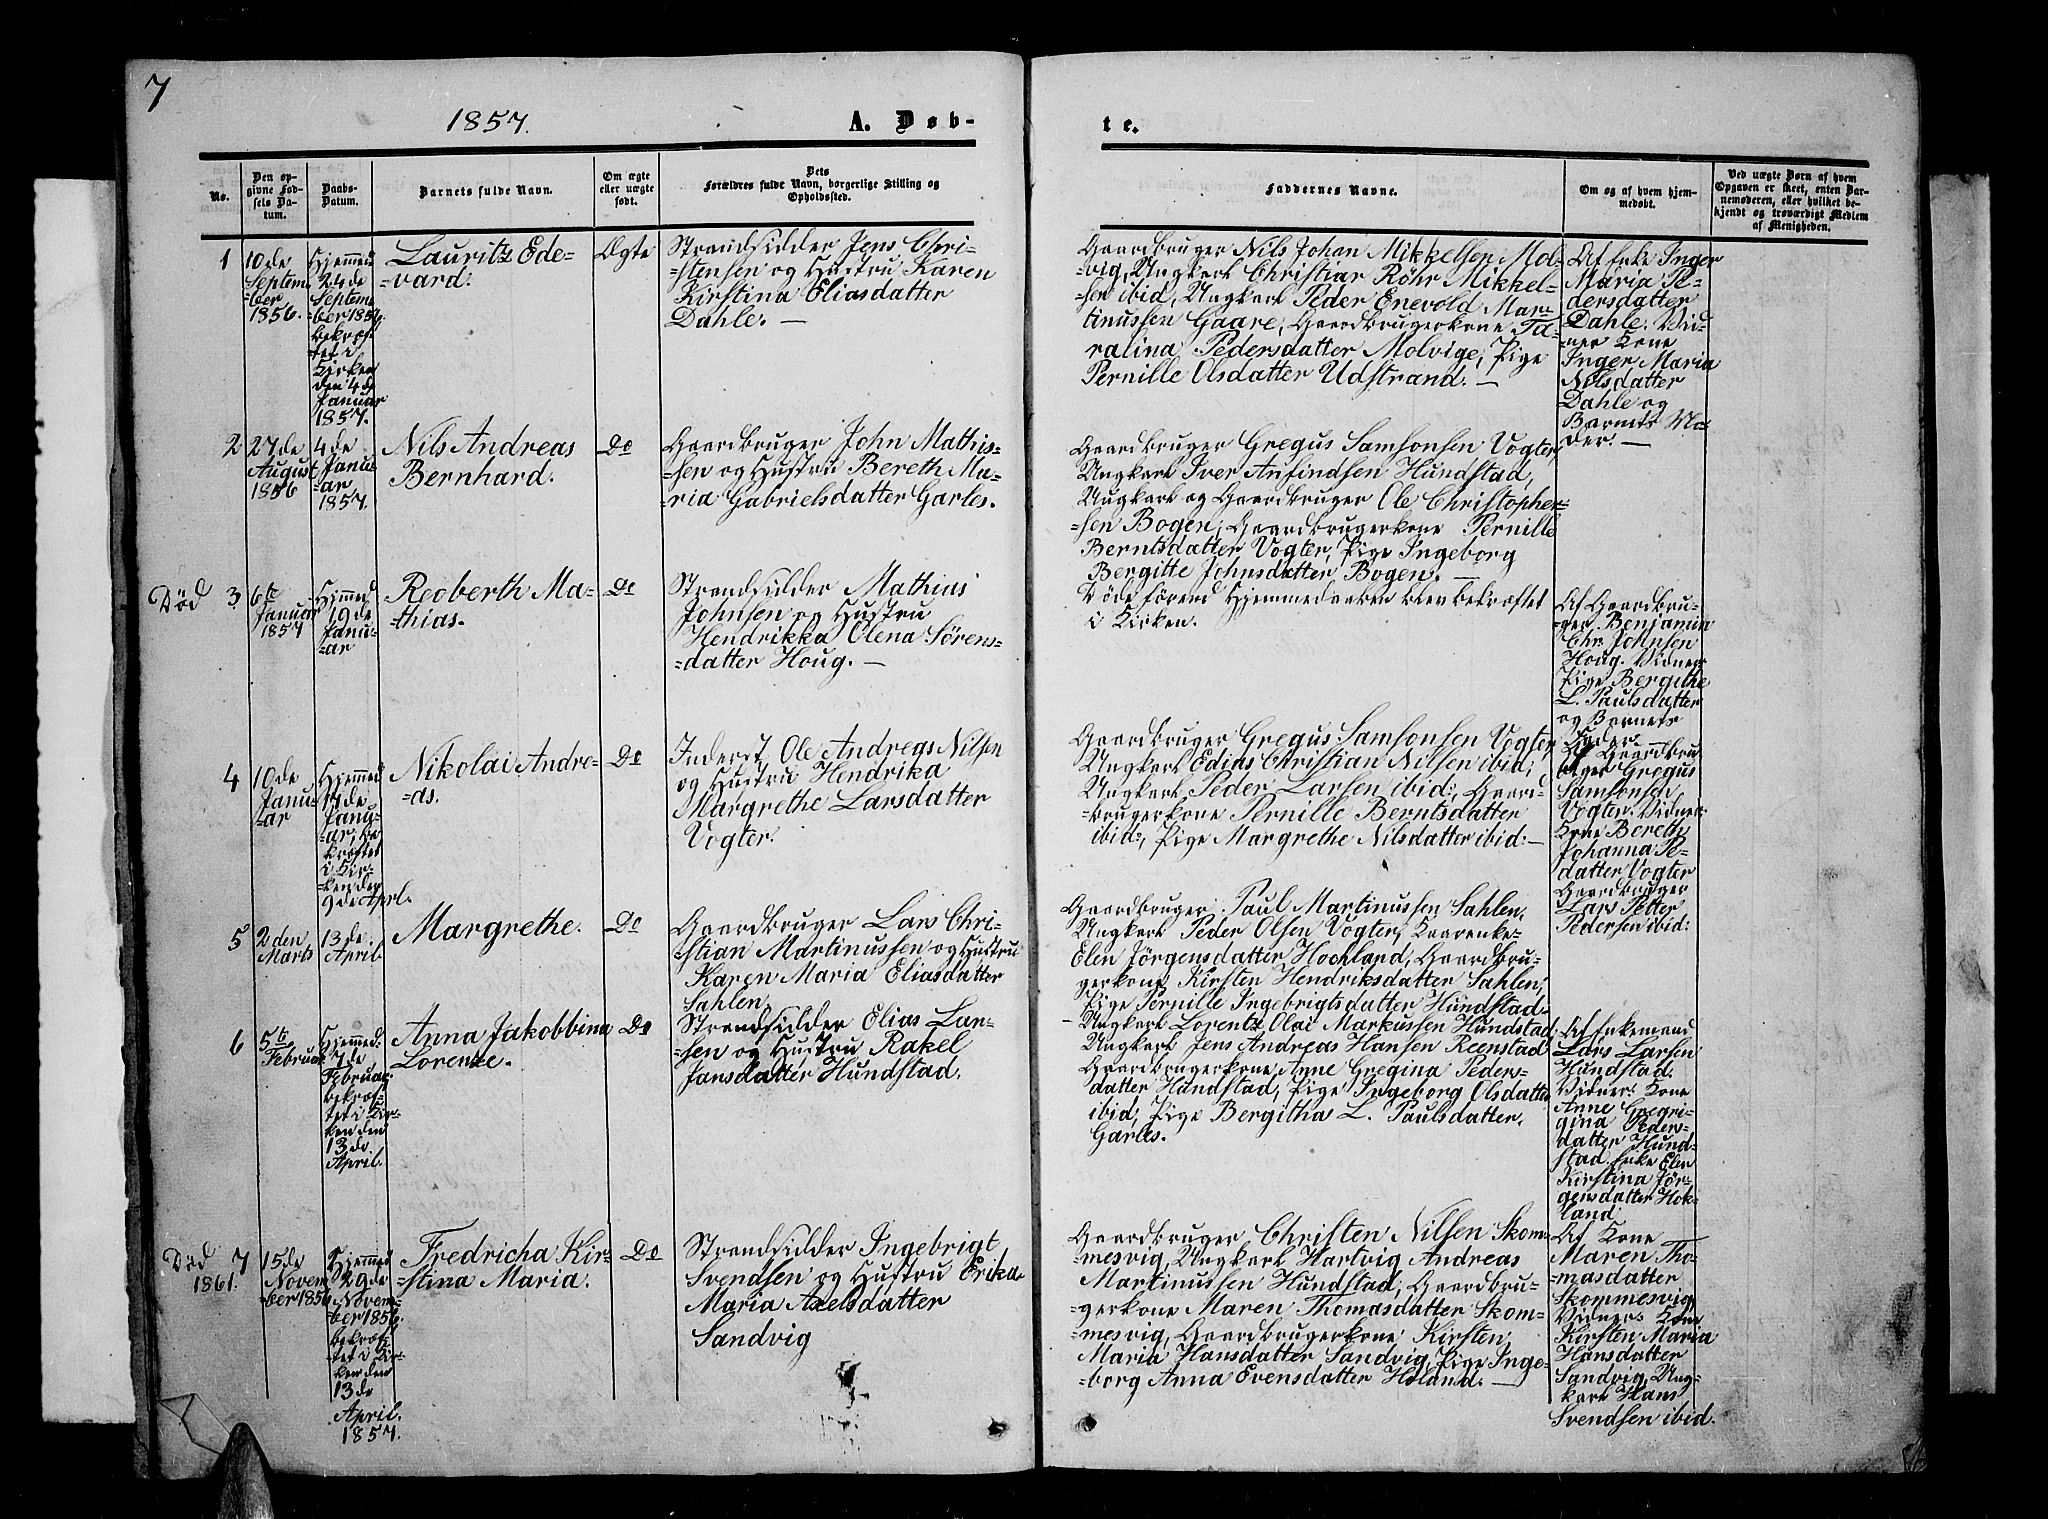 7
1857.
A. Døb-
te.
No.
Den op-
givne Fød-
sels Da-
tum.
Daabs-
Datum.
Barnets fulde Navn.
Om ægte
eller uægte
født.
Dets
Forældres fulde Navn, borgerlige Stilling og
Opholdssted.
Faddernes Navne.
Om og af hvem hjem-
medøbt.
Ved uægte Børn af hvem
Opgaven er skeet, enten Bar-
nemoderen, eller hvilket be-
kjendt og troværdigt Medlem
af Menigheden.
1
10de
Septem-
=ber
1856.
Hjemmed
24de
Septem-
=ber 1856.
bekræf-
=tet i
Kirken
den 4de
Januar
1857.
Lauritz Ede-
=vard.
Ægte
Strandsidder Jens Chri-
=stensen og Hustru Karen
Kirstina Eliasdatter
Dahle. —
Gaardbruger Nils Johan Mikkelsen Mol-
=vig, Ungkarl Christiar Röhr Mikkel-
=sen ibid, Ungkarl Peder Enevold Mar-
tinussen Gaare, Gaardbrugerkone Ta-
ralina Pedersdatter Molvige, Pige
Pernille Olsdatter Udstrand. —
Af Enke Inger
Maria Pe-
dersdatter
Dahle. Vid-
ner Kone
Inger Maria
Nilsdatter
Dahle og
Barnets Mo-
der. —
2
27de
August
1856
4de
Janu-
=ar
1857.
Nils Andreas
Bernhard.
Do
Gaardbruger John Mathis-
=sen og Hustru Bereth Ma-
=ria Gabrielsdatter Garles.
Gaardbruger Gregus Samsonsen Vogter,
Ungkarl Iver Anfindsen Hundstad,
Ungkarl og Gaardbruger Ole Christopher-
=sen Bogen, Gaardbrugerkone Pernille
Berntsdatter Vogter, Pige Ingeborg
Bergitte Johnsdatter Bogen. —
Död
3
6te
Januar
1857
Hjemmed
19de
Janu-
=ar
Reoberth Ma-
=thias.
Do
Strandsidder Mathias
Johnsen og Hustru
Hendrikka Olena Sörens-
=datter Houg. —
Döde förend Hjemmedaaben blev bekræftet
i Kirken.
Af Gaardbru-
=ger Benjamin
Chr. Johnsen
Houg. Vidner
Pige Bergithe
L. Paulsdatter
og Barnets
Fader.
4
10de
Janu-
=ar
Hjemmed
17de
Janu-
=ar, be-
kræftet
i Kir-
=ken den
9de Aprl.
Nikolai Andre-
=as.
Do
Inderst Ole Andreas Nilsen
og Hustru Hendrika
Margrethe Larsdatter
Vogter.
Gaardbruger Gregus Samsonsen Vogter,
Ungkarl Edias Christian Nilsen ibid;
Ungkarl Peder Larsen ibid:, Gaard-
=brugerkone Pernille Berntsdatter
ibid:, Pige Margrethe Nilsdatter ibid: —
Af Gaardbru-
=ger Gregus
Samsonsen
Vogter. Vidner
Kone Bereth
Johanna Pe-
datter Vogter
Gaardbruger
Lars Petter
Pedersen ibid:
5
2den
Marts
13de.
April
Margrethe.
Do
Gaardbruger Lars Chri-
stian Martinussen og Hustru
Karen Maria Eliasdatter
Sahlen.
Gaardbruger Paul Martinussen Sahlen,
Ungkarl Peder Olsen Vogter, Kaarenke-
Elen Jörgensdatter Hochland, Gaardbru-
gerkone Kirsten Hendriksdatter Sahlen,
Pige Pernille Ingebrigtsdatter Hundstad-
6
5te
Februar
Hjemmed:
7de
Februar
bekræf-
=tet i Kir-
ken den
13de
April.
Anna Jakobbina
Lorense.
Do
Strandsidder Elias Lar-
=sen og Hustru Rakel
Jansdatter Hundstad.
- Ungkarl Lorentz Olai Markussen Hundstad,
Ungkarl Jens Andreas Hansen Reenstad
Gaardbrugerkone Anne Gregina Peders-
datter Hundstad, Pige Ingeborg Olsdatter
ibid; Pige Bergitha L. Paulsdatter,
Garles.
Af Enkemand
Lars Larsen
Hundstad.
Vidner: Kone
Anne Gregri-
gina Peders-
datter Hund-
stad. Enke Elen
Kirstina Jör-
gensdatter Hok-
land
Död
1861.
7
15de
Novem-
=ber 1856
Hjemmed
29de
Novem-
=ber 1856.
bekræf-
=tet i Kir-
ken den
13de
April.
1857.
Fredricha Kir-
=stina Maria.
Do
Strandsidder Ingebrigt
Svendsen og Hustru Erika
Maria Axelsdatter
Sandvig
Gaardbruger Christen Nilsen Skom-
mesvig, Ungkarl Hartvig Andreas
Martinussen Hundstad, Gaardbru-
=gerkone Maren Thomasdatter Skom-
=mesvig, Gaardbrugerkone Kirsten
Maria Hansdatter Sandvig, Pige Inge-
=borg Anna Evensdatter Holand. —
Af Kone
Maren Tho-
=masdatter
Skommesvig
Vidner: Kone
Kirsten Maria
Hansdatter
Sandvig, Ung-
karl Hans
Svendsen ibid.